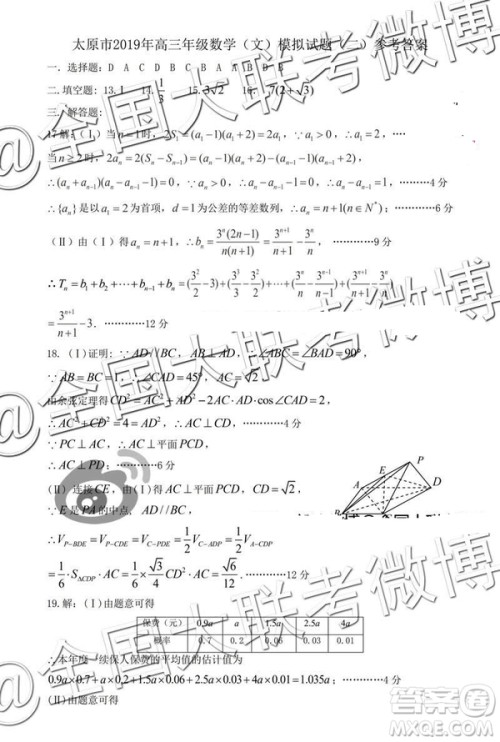 太原市2019年高三年级数学（文）模拟试题（二）参考答案
一．选择题：D A C D C B A A D B B C
二．填空题：13.1 14. 1/3 15. 3√2 16. 7(2+√3)
三．解答题：
17解：（Ⅰ）当n=1时，2S₁=(a₁-1)(a₁+2)=2a₁，∵a₁>0，∴a₁=2，
当n≥2时，2aₙ=2(Sₙ-Sₙ₋₁)=(aₙ-1)(aₙ+2)-(aₙ₋₁-1)(aₙ₋₁+2)，
∴(aₙ+aₙ₋₁)(aₙ-aₙ₋₁-1)=0，∵aₙ>0，∴aₙ-aₙ₋₁=1，…………4分
∴{aₙ}是以a₁=2为首项，d=1为公差的等差数列，∴aₙ=n+1(n∈N*)；…………6分
（Ⅱ）由（Ⅰ）得aₙ=n+1，∴bₙ=3ⁿ(2n-1)/n(n+1)=3ⁿ⁺¹/(n+1)-3ⁿ/n， …………9分
∴Tₙ=b₁+b₂+⋯+bₙ₋₁+bₙ=(3²/2-3)+(3³/3-3²/2)+⋯+(3ⁿ/n-3ⁿ⁻¹/(n-1))+(3ⁿ⁺¹/(n+1)-3ⁿ/n)
=3ⁿ⁺¹/(n+1)-3．…………12分
18.（Ⅰ）证明：∵AD//BC，AB⊥AD，∴∠ABC=∠BAD=90°，
∵AB=BC=1，∴∠CAD=45°，AC=√2，
由余弦定理得CD²=AC²+AD²-2AC·AD·cos∠CAD=2，
∴AC²+CD²=4=AD²，∴AC⊥CD，…………4分
∵PC⊥AC，∴AC⊥平面PCD，
∴AC⊥PD；…………6分
（Ⅱ）连接CE，由（Ⅰ）得AC⊥平面PCD，CD=√2，
∵E是PA的中点，AD//BC，
P
E
A
D
B
C
∴V_{P-BDE}=V_{P-CDE}=V_{C-PDE}=1/2 V_{C-APD}=1/2 V_{A-CDP}
=1/6·S_{△CDP}·AC=1/6×√3/4 CD²·AC=√6/12．…………12分
19.解：（Ⅰ）由题意可得
保费（元） 0.9a a 1.5a 2.5a 4a
概率 0.7 0.2 0.06 0.03 0.01
∴本年度一续保人保费的平均值的估计值为
0.9a×0.7+a×0.2+1.5a×0.06+2.5a×0.03+4a×0.01=1.035a；…………4分
（Ⅱ）由题意可得
@全国大联考微博
@全国大联考微博
@全国大联考微博
作业帮